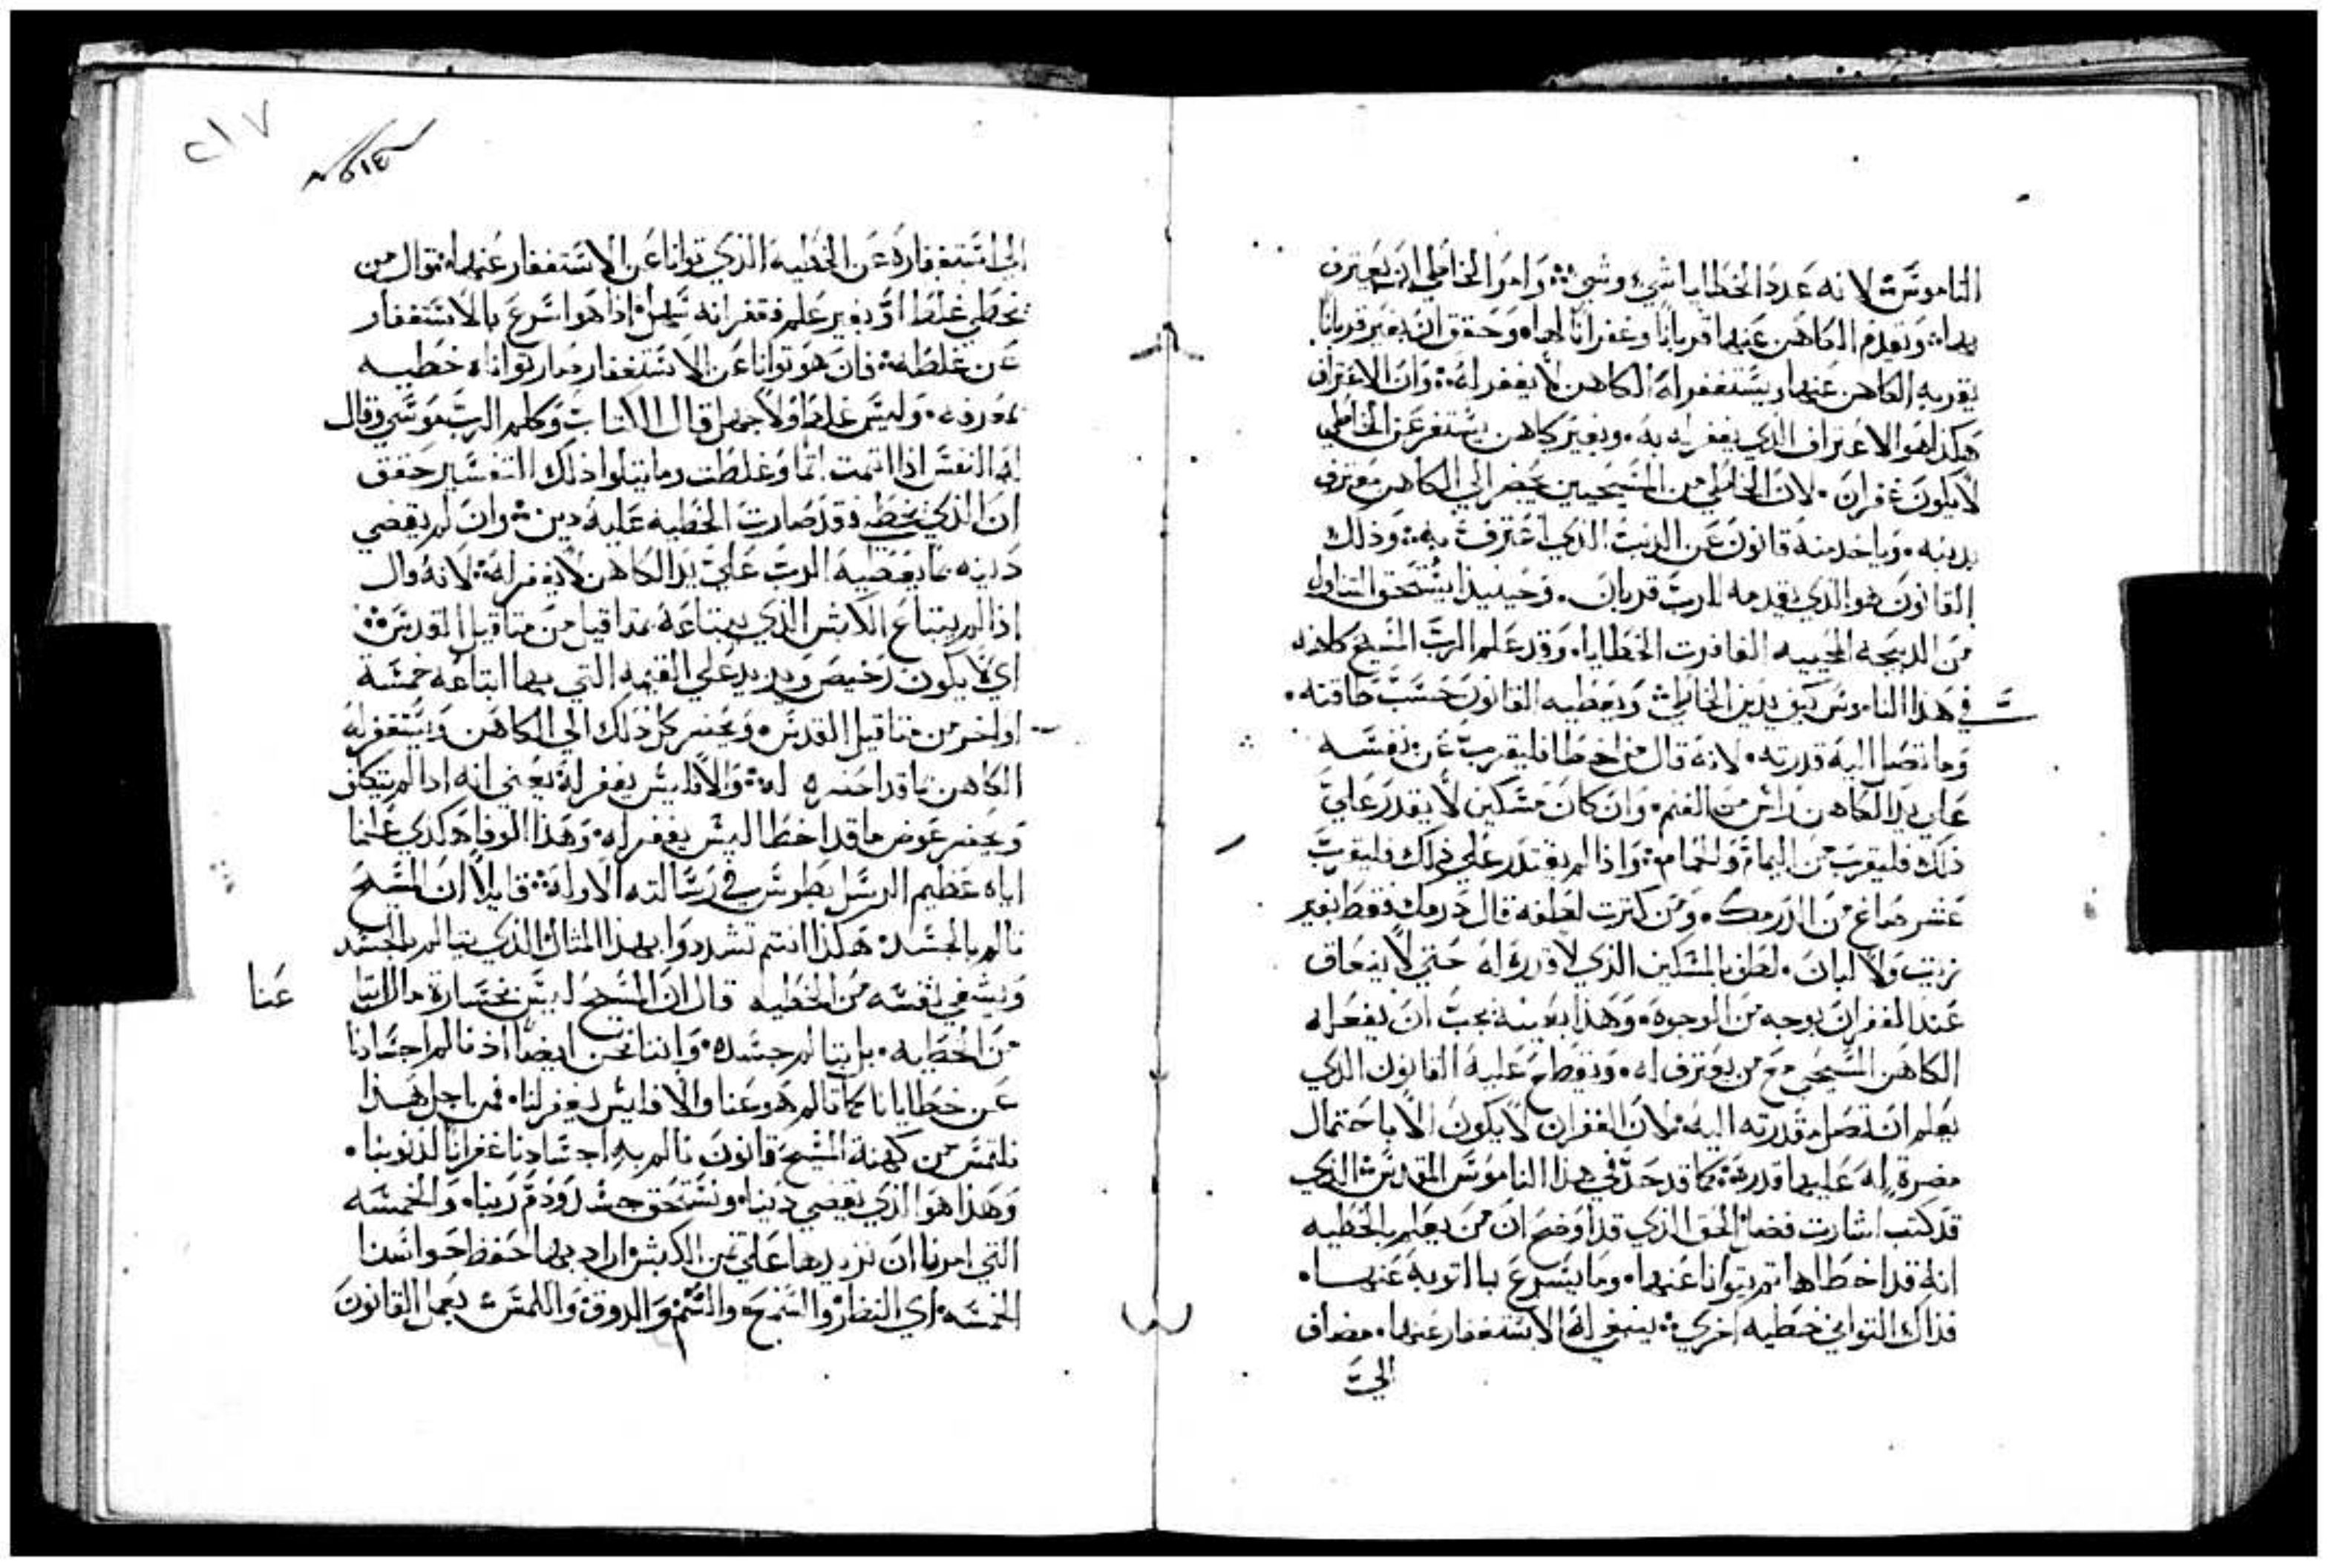 الناموس لانه عدد الخطايا شي وشي وامر الخاطي ان يعترف
بها ويقدم الكاهن عنها قربانا وغفرانا لها وحقق ان بغير قربانا
يقربه الكاهن عنها ويستغفر له الكاهن لا يغفر له وان الاعتراف
هكذا هو الاعتراف الذي يغفر له به وبغير كاهن يستغفر عن الخاطي
لا يكون غفران لان الخاطي من المسيحيين يحضر الي الكاهن معترف
بدينه وياخد منه قانون عن الدنب الذي اعترف به وذلك
القانون هو الذي يقدمه للرب قربان وحينيذ يستحق التناول
من الدبيحه المحييه الغافرت الخطايا وقد علم الرب المسيح كاهنه
في هذا الناموس كيف يدين الخاطي ويعطيه القانون حسب طاقته
وما تصل اليه قدرته لانه قال من اخطا فليقرب عن نفسه
علي يد الكاهن راس من الغنم وان كان مسكين لا يقدر علي
ذلك فليقرب من اليمام والحمام واذا لم يقتدر علي ذلك فليقرب
عشر صاع من الدرمك ومن كترت لطفه قال درمك فقط بغير
زيت ولا لبان لطف بالمسكين الذي لا قدره له حتي لا ينعاق
عند الغفران بوجه من الوجوه وهذا بعينه يجب ان يفعله
الكاهن المسيحي مع من يعترف له ويقطع عليه القانون الذي
يعلم ان تصل قدرته اليه لان الغفران لا يكون الا باحتمال
مضرة له عليها قدره كما قد حد في هذا الناموس المقدس الذي
قد كتب اشارت فضل الحق الذي قد اوضح ان من يعلم بالخطيه
انه قد اخطاها تم يتوانا عنها وما يسرع بالتوبه عنها
فذاك التواني خطيه اخري ينبغي له الاستغفار عنها مضاف
الي
٢١٧
الي استغفاره عن الخطيه الذي توانا عن الاستغفار عنها
يخطي غلط او بغير علم فغفرانه سهل اذا هو اسرع بالاستغفار
عن غلطه فان هو توانا عن الاستغفار صار توانااه خطيه
بمعرفه وليس غلط ولا جهل قال الكتاب وكلم الرب موسي وقال
له النفس اذا اتمت اتما وغلطت وما يتلوا ذلك التفسير حقق
ان الذي يخطي فقد صارت الخطيه عليه دين وان لم يقضي
دينه بما يعطيه الرب علي يد الكاهن لا يغفر له لانه قال
اذا لم يبتاع الكبش الذي يبتاعه بمتاقيل من متاقيل القدس
اي لا يكون رخيص ويزيد علي القيمه التي بها ابتاعه خمسة
اواخر من متاقيل القدس ويحضر كل ذلك الي الكاهن ويستغفر له
الكاهن بما قد احضره له والا فليس يغفر له يعني انه اذا لم يتكلف
ويحضر عوض ما قد اخطا ليس يغفر له وهذا الوفا هكدي علمنا
اياه عظيم الرسل بطرس في رسالته الاوله قايلا ان المسيح
تالم بالجسد هكذا انتم تشددوا بهذا المثال الذي يتالم بالجسد
ويشفي نفسه من الخطيه قال ان المسيح ليس بخسارة مال
عنا
من الخطايه بل بتالم جسده واننا نحن ايضا اذ نالم اجسادنا
عن خطايانا كما تالم هو عنا والا فليس يغفر لنا فمن اجل هذا
نلتمس من كهنة المسيح قانون نالم به اجسادنا غفرانا لذنوبنا
وهذا هو الذي يقضي ديننا ونستحق جسد ودم ربنا والخمسه
التي امرنا ان نزيدها علي تمن الكبش اراد بها حفظ حواسنا
الخمسه اي النظر والسمع والشم والدوق واللمس بعمل القانون